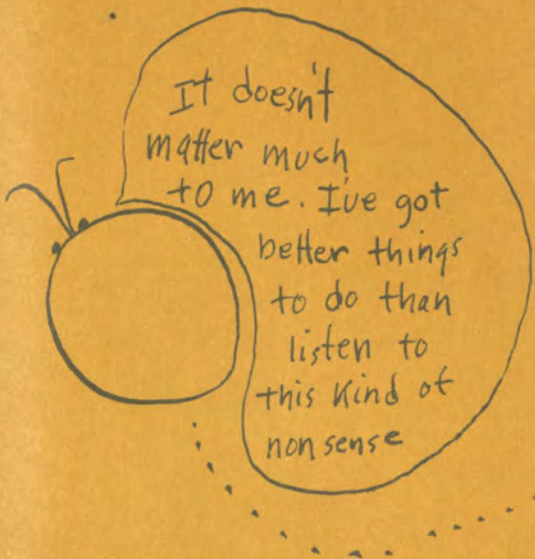 It doesn't
matter much
to me. I've got
better things
to do than
listen to
this kind of
nonsense